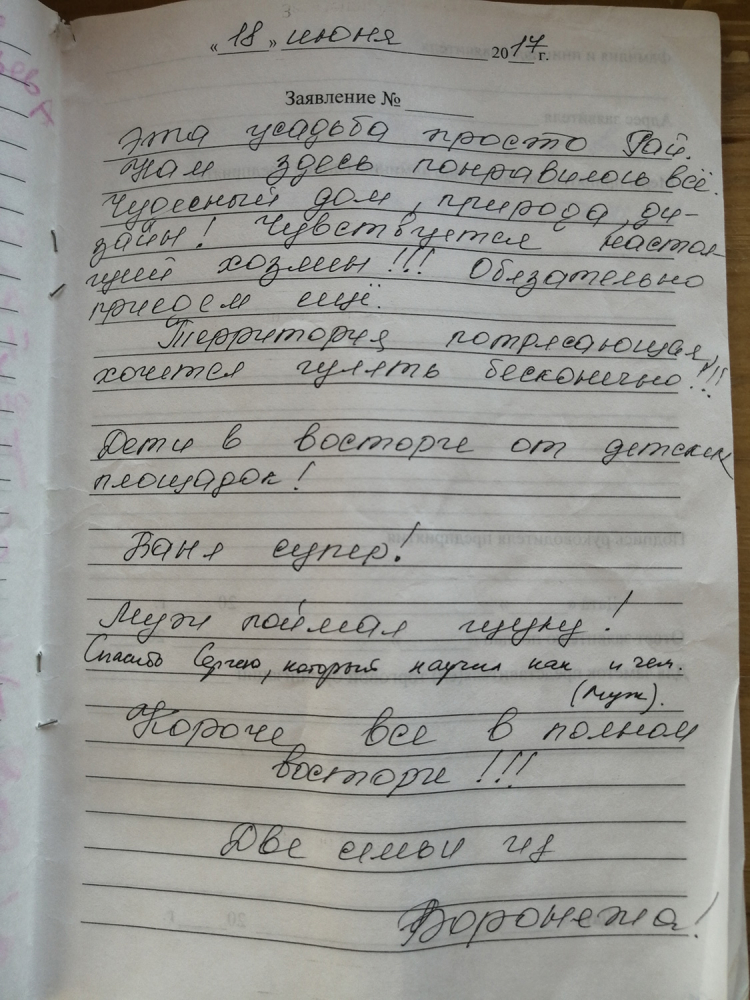 « 18 » июня 2017 г.
Заявление №
Эта усадьба просто Рай.
Нам здесь понравилось всё.
Чудесный дом, природа, ди-
зайн! Чувствуется настоя-
щий хозяин!!! Обязательно
приедем ещё.
Территория потрясающая,
хочется гулять бесконечно!!!
Дети в восторге от детских
площадок!
Ваня супер!
Муж поймал щуку!
Спасибо Сергею, который научил как и чем.
(муж).
Короче все в полном
восторге!!!
Две семьи из
Воронежа!